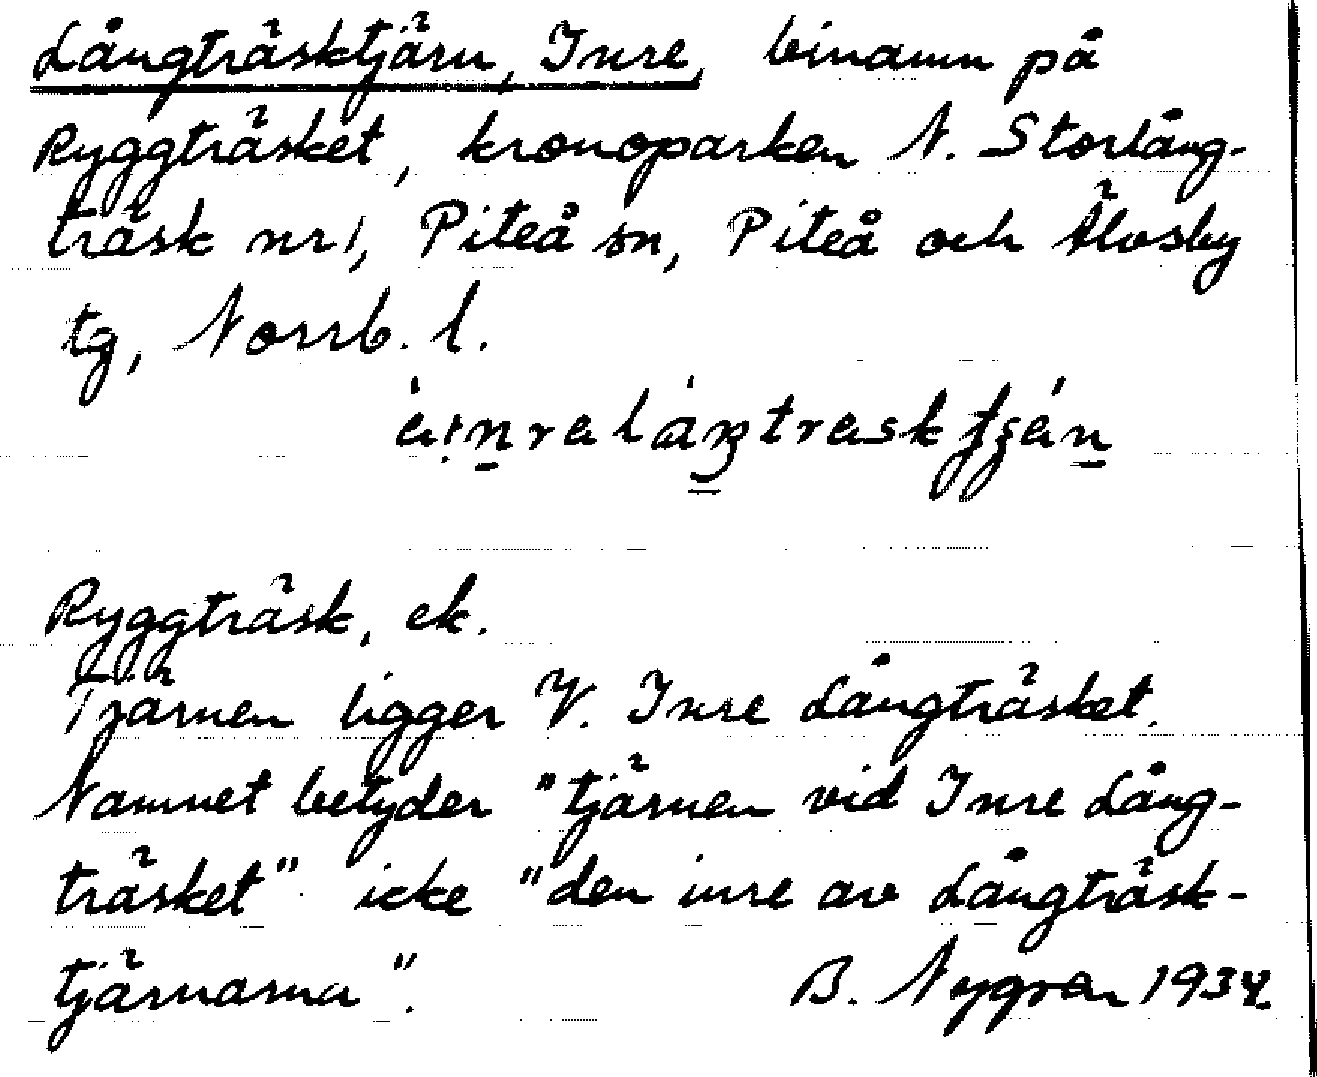 Långträsktjärn, Inre, binamn på
Ryggträsket, kronoparken N. Storlång-
träsk nr 1, Piteå sn, Piteå och Älvsby
tg, Norrb. l.
Ryggträsk, ek.
Tjärnen ligger V. Inre Långträsket.
Namnet betyder "tjärnen vid Inre Lång-
träsket" icke "den inre av Långträsk-
tjärnarna".
B. Nygren 1934.